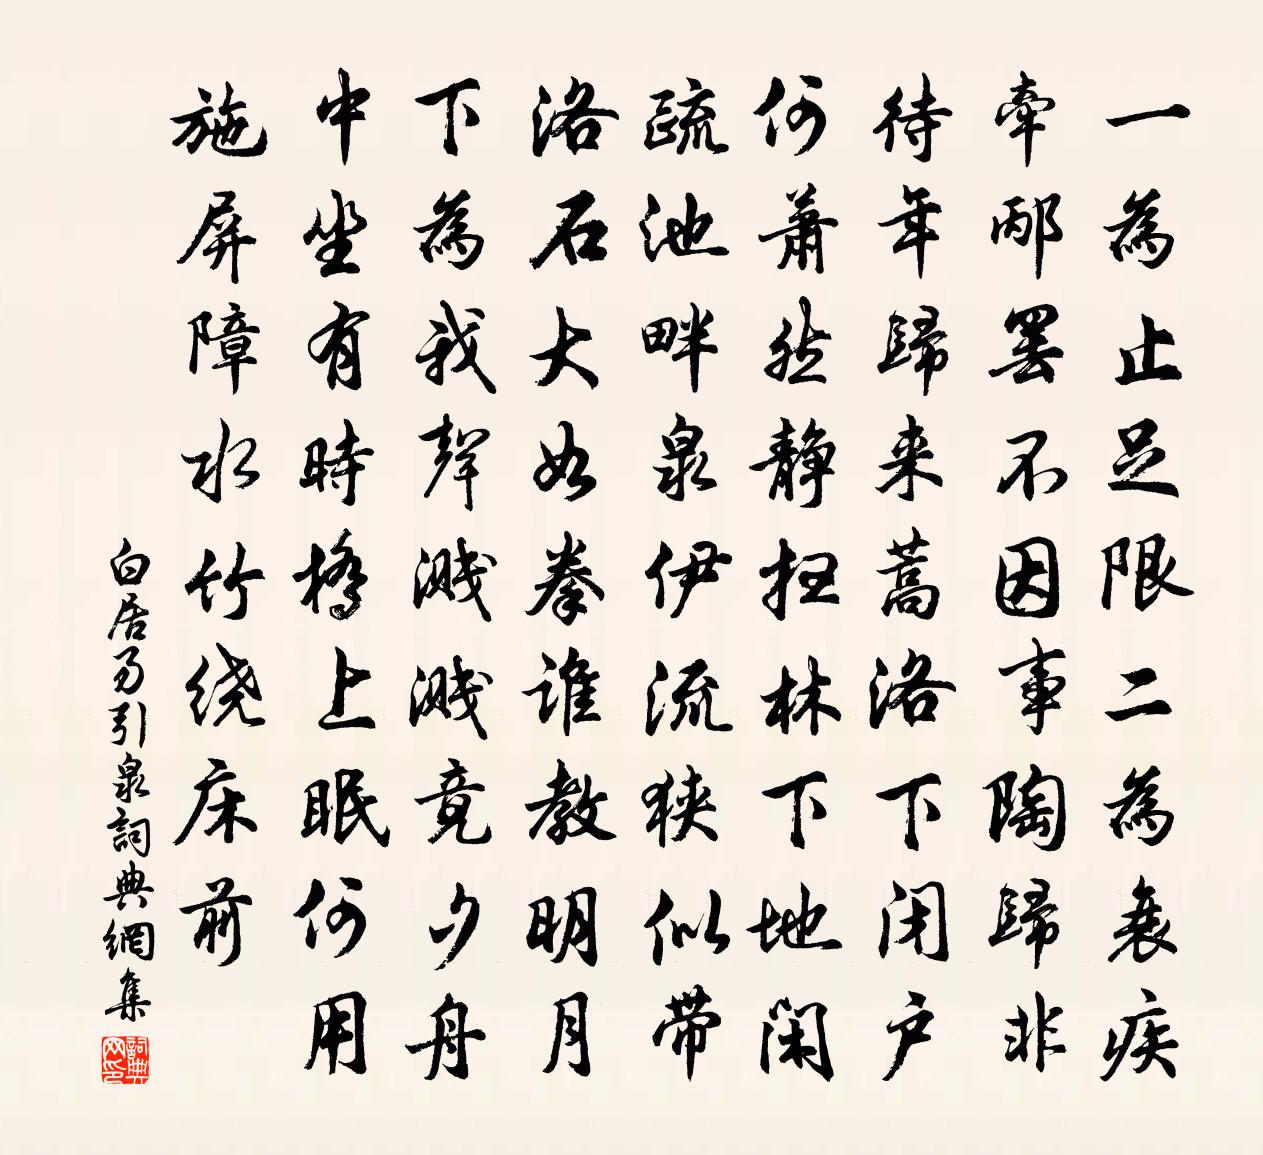 一為止足限二為衰疾
牽邴罷不因事陶歸非
待年歸来嵩洛下閉户
何蕭然静扫林下地閑
疏池畔泉伊流狭似带
洛石大如拳誰教明月
下為我聲濺濺竟夕舟
中坐有時橋上眠何用
施屏障水竹绕床前
白居易引泉詞典網集
詞典网印